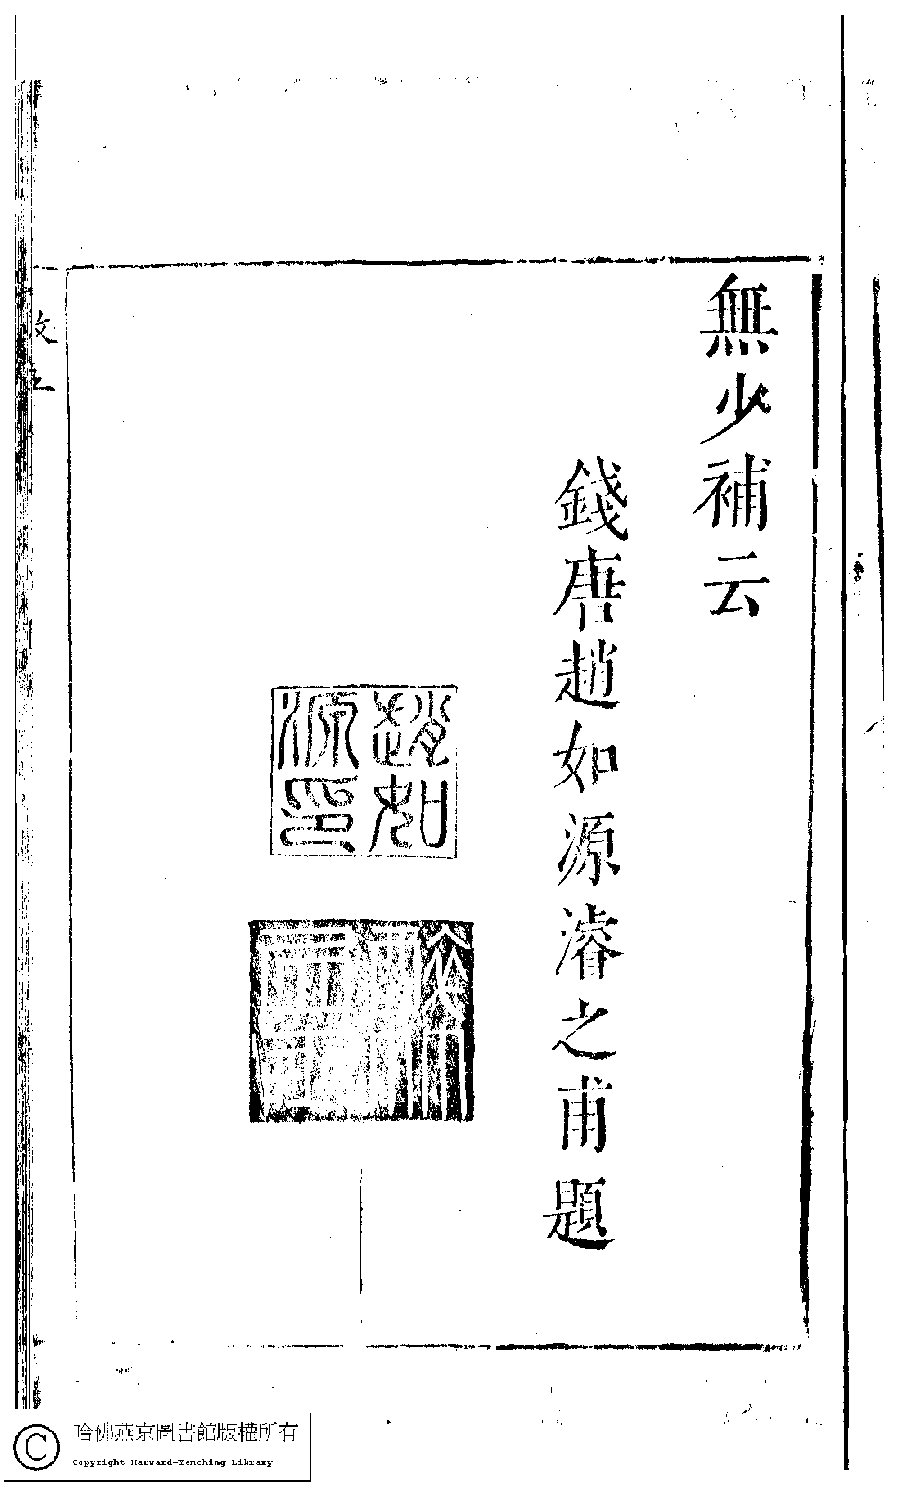 無少補云
錢唐趙如源濬之甫題
趙如源印
哈佛燕京圖書館版權所有
Copyright Harvard-Yenching Library